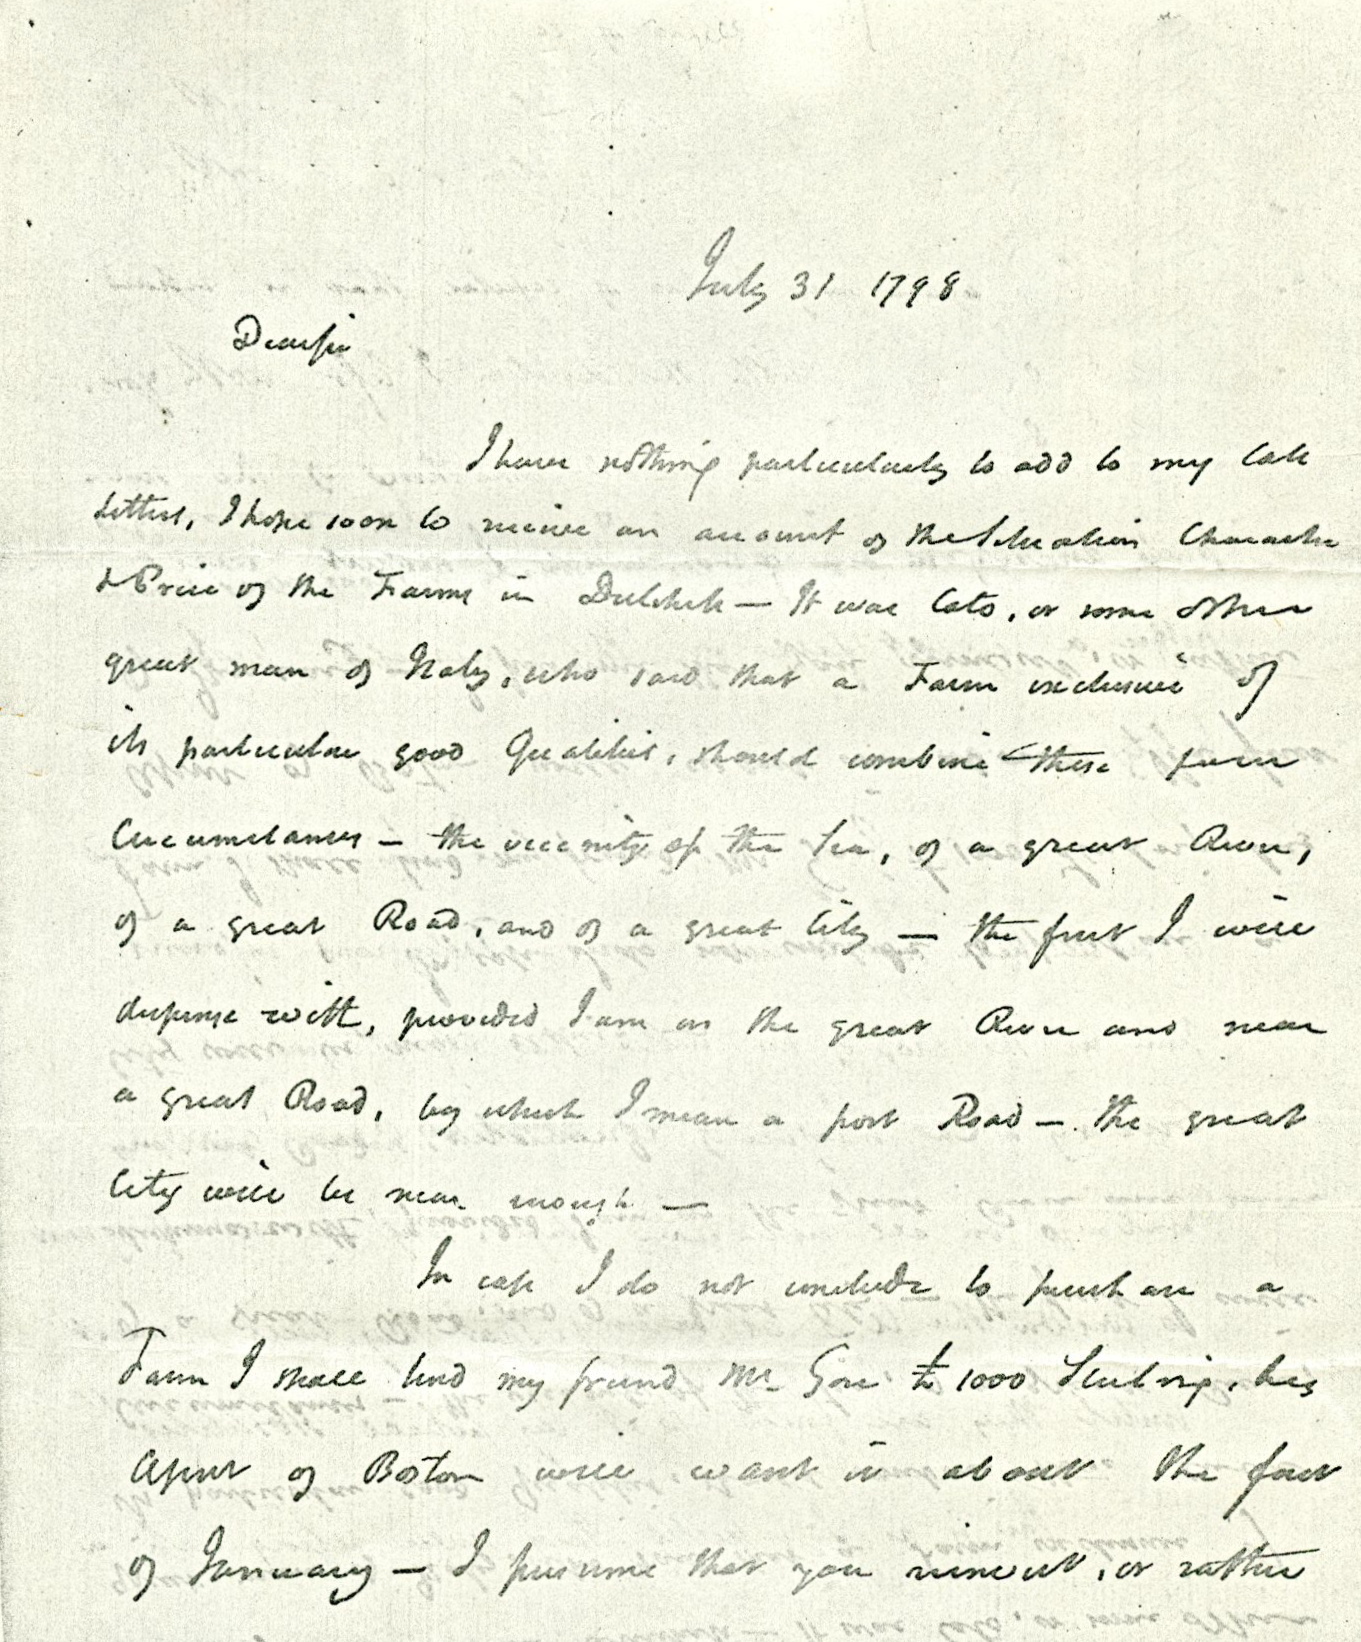 July 31 1798
Dear sir
I have nothing particularly to add to my late
Letters, I hope soon to receive an account of the Situation Character
& Price of the Farms in Dutchess — It was Cato, or some other
great man of Italy, who said that a Farm exclusive of
its particular good Qualities, should combine these four
Circumstances — the vicinity of the Sea, of a great River,
of a great Road, and of a great City — the first I will
dispense with, provided I am on the great River and near
a great Road, by which I mean a post Road — the great
City will be near enough —
In case I do not conclude to purchase a
Farm I shall lend my friend Mr Gore £1000 Sterling, his
Agent of Boston will want it about the first
of January — I presume that you reinvest, or rather